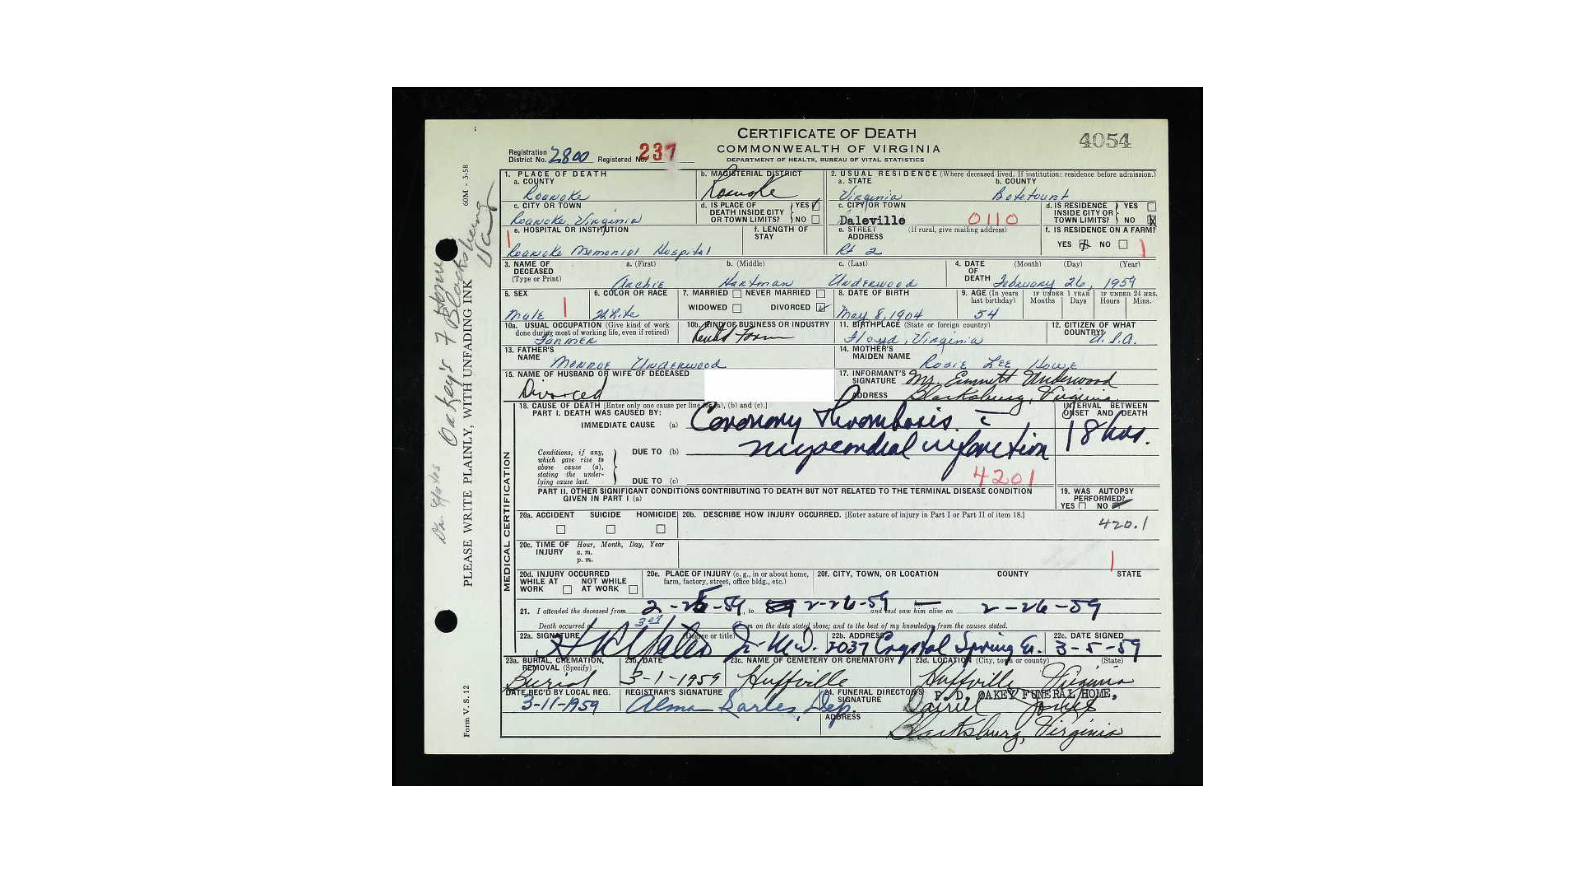 CERTIFICATE OF DEATH
COMMONWEALTH OF VIRGINIA
DEPARTMENT OF HEALTH, BUREAU OF VITAL STATISTICS
4054
Registration District No. 2800 Registered No. 237
60M - 3-58
1. PLACE OF DEATH
a. COUNTY
Roanoke
b. MAGISTERIAL DISTRICT
Roanoke
2. USUAL RESIDENCE (Where deceased lived. If institution: residence before admission.)
a. STATE
Virginia
b. COUNTY
Botetourt
c. CITY OR TOWN
Roanoke Virginia
d. IS PLACE OF DEATH INSIDE CITY OR TOWN LIMITS? YES NO
c. CITY OR TOWN
Daleville
0110
d. IS RESIDENCE INSIDE CITY OR TOWN LIMITS? YES NO X
e. HOSPITAL OR INSTITUTION
Roanoke Memorial Hospital
f. LENGTH OF STAY
e. STREET ADDRESS (If rural, give mailing address)
Rt 2
f. IS RESIDENCE ON A FARM?
YES NO
3. NAME OF DECEASED (Type or Print)
a. (First) b. (Middle) c. (Last)
Archie Hartman Underwood
4. DATE OF DEATH (Month) (Day) (Year)
February 26, 1959
5. SEX
Male
6. COLOR OR RACE
White
7. MARRIED NEVER MARRIED
WIDOWED DIVORCED
8. DATE OF BIRTH
May 8, 1904
9. AGE (In years last birthday)
54
IF UNDER 1 YEAR Months Days
IF UNDER 24 HRS. Hours Mins.
10a. USUAL OCCUPATION (Give kind of work done during most of working life, even if retired)
Farmer
10b. KIND OF BUSINESS OR INDUSTRY
Farm
11. BIRTHPLACE (State or foreign country)
Floyd, Virginia
12. CITIZEN OF WHAT COUNTRY?
U.S.A.
13. FATHER'S NAME
Monroe Underwood
14. MOTHER'S MAIDEN NAME
Rosie Lee Howe
15. NAME OF HUSBAND OR WIFE OF DECEASED
Divorced
17. INFORMANT'S SIGNATURE Mr. Emmett Underwood
ADDRESS Blacksburg, Virginia
MEDICAL CERTIFICATION
18. CAUSE OF DEATH [Enter only one cause per line for (a), (b) and (c).]
PART I. DEATH WAS CAUSED BY:
IMMEDIATE CAUSE (a) Coronary Thrombosis
INTERVAL BETWEEN ONSET AND DEATH
18 hrs.
Conditions, if any, which gave rise to above cause (a), stating the underlying cause last.
DUE TO (b) myocardial infarction
DUE TO (c)
4201
PART II. OTHER SIGNIFICANT CONDITIONS CONTRIBUTING TO DEATH BUT NOT RELATED TO THE TERMINAL DISEASE CONDITION GIVEN IN PART I (a)
19. WAS AUTOPSY PERFORMED?
YES NO
420.1
20a. ACCIDENT SUICIDE HOMICIDE
20b. DESCRIBE HOW INJURY OCCURRED. [Enter nature of injury in Part I or Part II of item 18.]
20c. TIME OF INJURY Hour, Month, Day, Year
a. m.
p. m.
20d. INJURY OCCURRED
WHILE AT WORK NOT WHILE AT WORK
20e. PLACE OF INJURY (e. g., in or about home, farm, factory, street, office bldg., etc.)
20f. CITY, TOWN, OR LOCATION COUNTY STATE
21. I attended the deceased from 2-25-59, to 2-26-59 and last saw him alive on 2-26-59
Death occurred at m on the date stated above; and to the best of my knowledge from the causes stated.
22a. SIGNATURE (Degree or title)
Jr. M.D.
22b. ADDRESS
2037 Crystal Spring
22c. DATE SIGNED
3-5-59
23a. BURIAL, CREMATION, REMOVAL (Specify)
Burial
23b. DATE
3-1-1959
23c. NAME OF CEMETERY OR CREMATORY
Huffville
23d. LOCATION (City, town or county) (State)
Huffville Virginia
DATE REC'D BY LOCAL REG.
3-11-1959
REGISTRAR'S SIGNATURE
Alma Sarles, Dep.
24. FUNERAL DIRECTOR'S SIGNATURE
OAKEY FUNERAL HOME,
ADDRESS
Blacksburg, Virginia
PLEASE WRITE PLAINLY, WITH UNFADING INK
Form V. S. 12